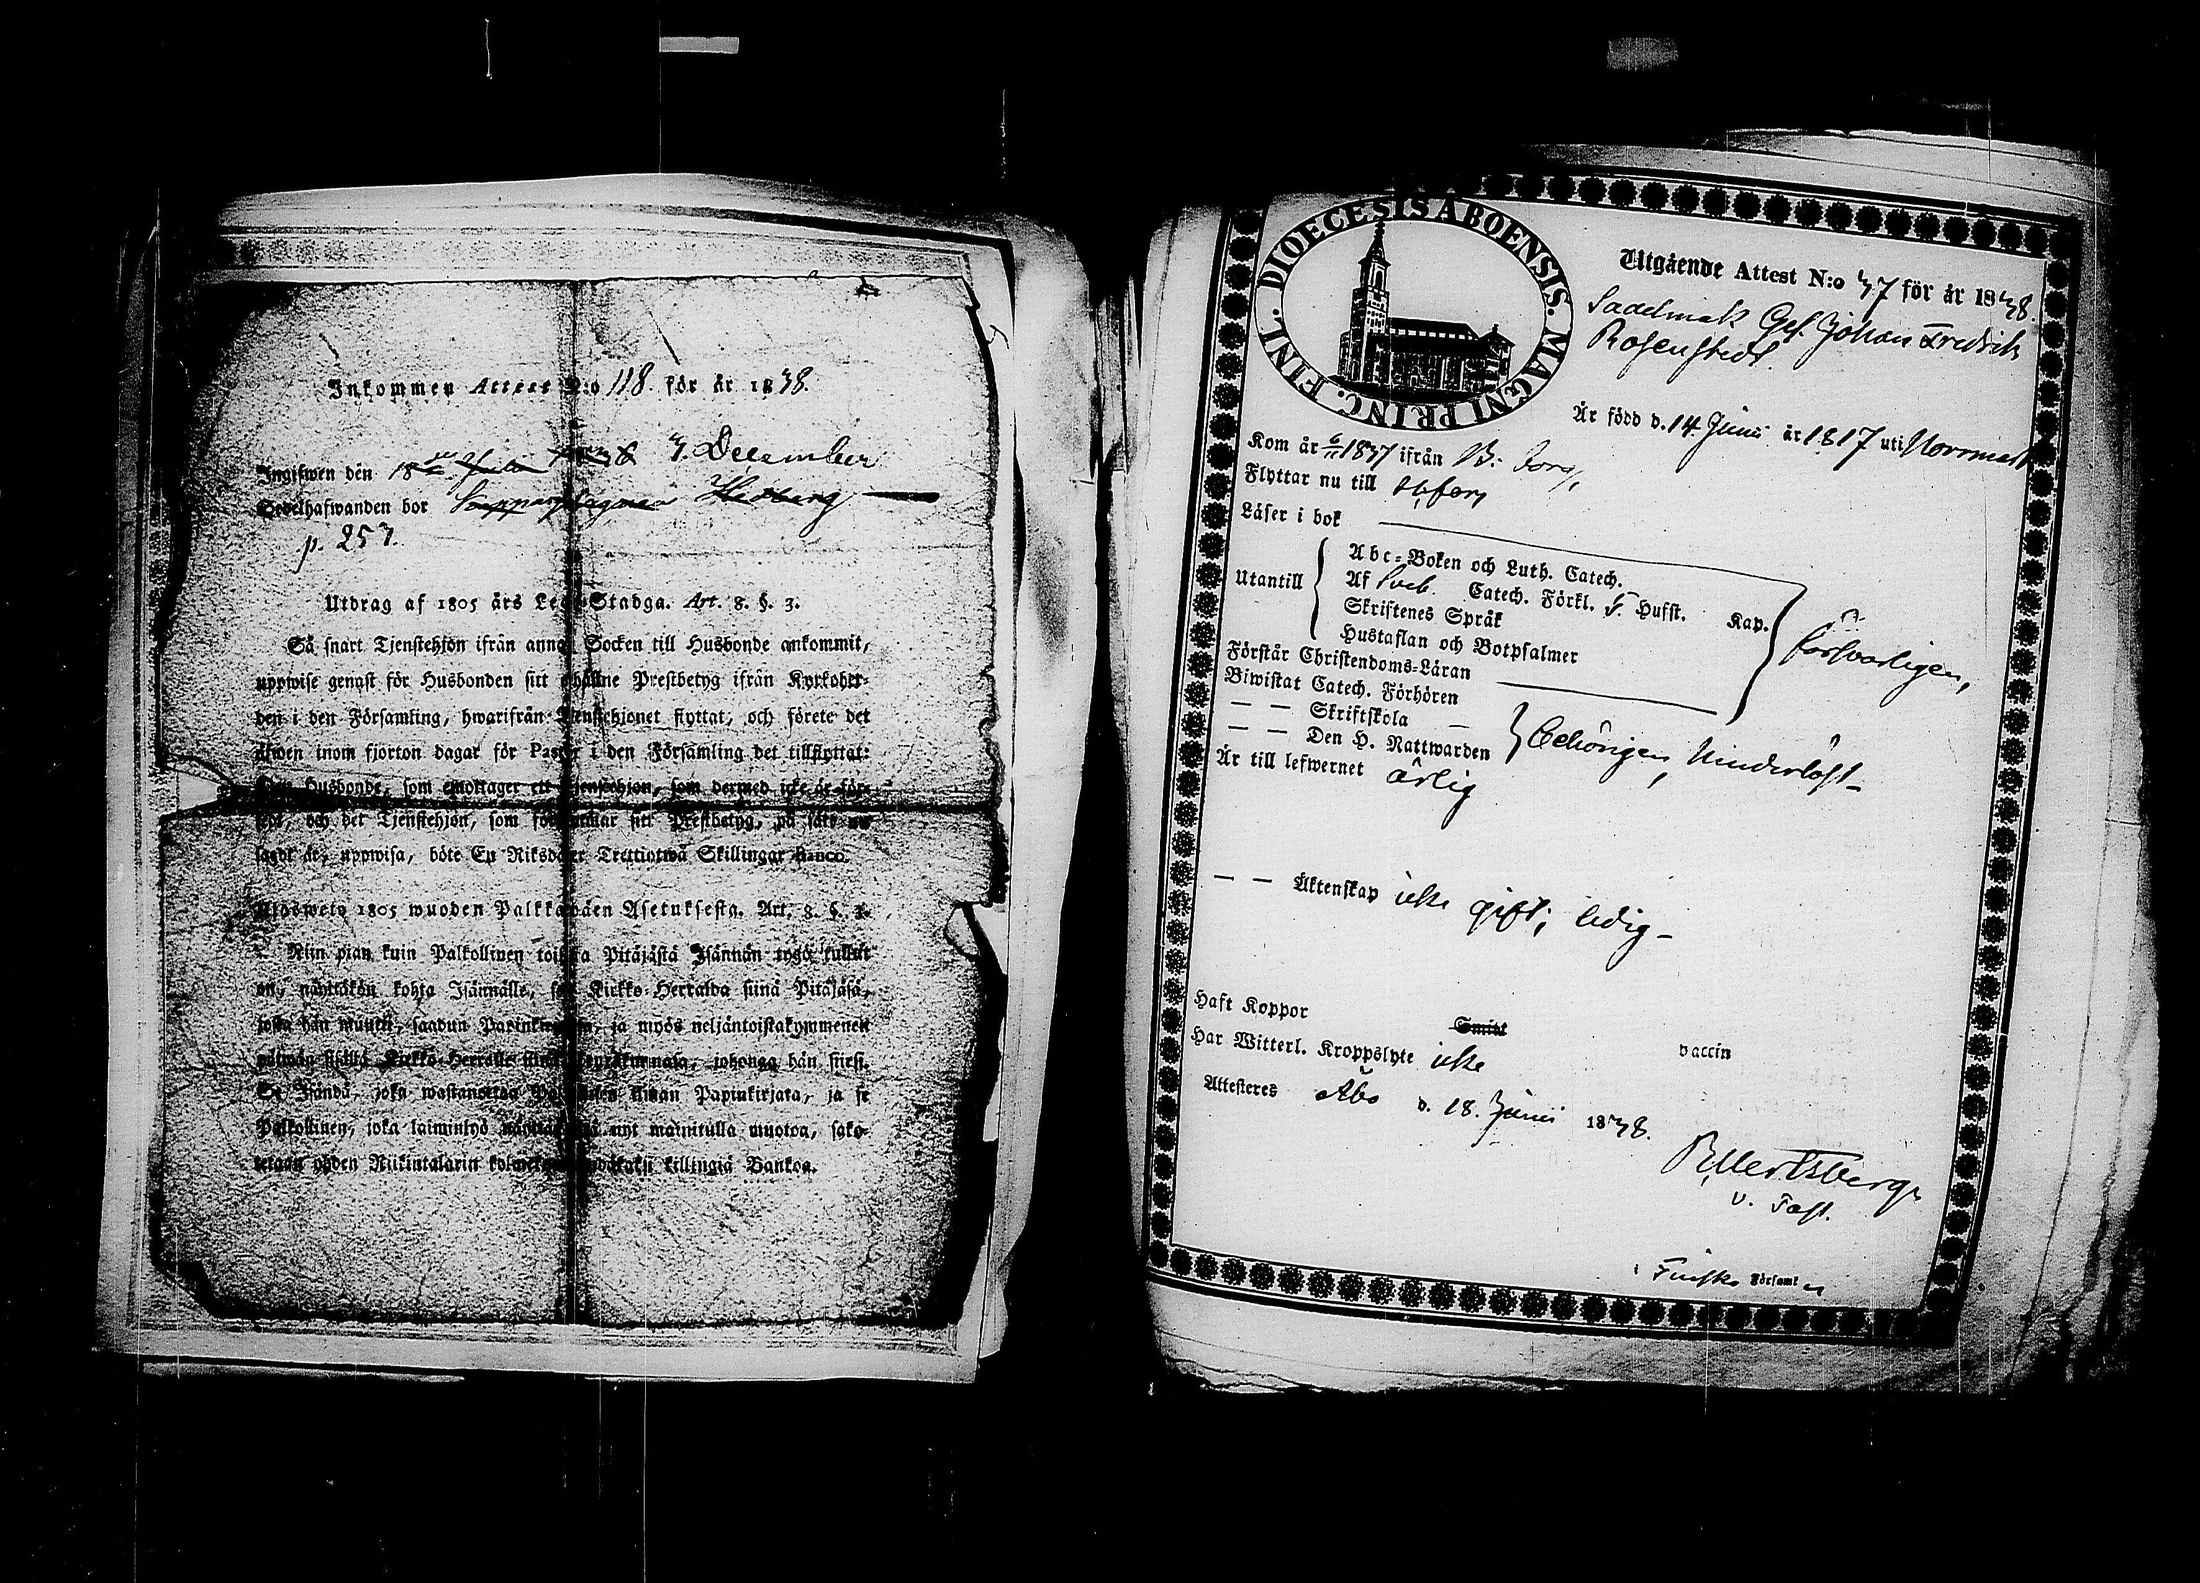 Inkommen Attest N:o 118. för år 1838.
Ingifwen den 18 Julii 3. December
Sedelhafwanden bor Hedberg
p. 253.
Utdrag af 1805 års Lego-Stadga. Art. 8. §. 3.
Så snart Tjenstehjon ifrån annan Socken till Husbonde ankommit,
uppwise genast för Husbonden sitt erhållne Prestbetyg ifrån Kyrkoher-
den i den Församling, hwarifrån Tjenstehjonet flyttat, och förete det
äfwen inom fjorton dagar för Pastor i den Församling det tillflyttat:
Den Husbonde, som emottager ett Tjenstehjon, som dermed icke är för-
sedt, och det Tjenstehjon, som försummar sitt Prestbetyg, på sätt nu
sagdt är, uppwisa, böte En Riksdaler Trettiotwå Skillingar Banco.
Ulosweto 1805 wuoden Palkkawäen Asetuksesta. Art. 8. §. 3.
Niin pian kuin Palkollinen toisesta Pitäjästä Isännän tygö tullut
on, näyttäkön kohta Isännälle, sen Kirkko-Herralda siinä Pitäjäsä,
josta hän muutti, saadun Papinkirjan, ja myös neljäntoistakymmenen
päiwän sisällä Kirkko-Herralle siinä Seurakunnasa, johonga hän siirsi.
Se Isändä, joka wastanottaa Palkollisen ilman Papinkirjata, ja se
Palkollinen, joka laiminlyö näyttää sitä nyt mainitulla muotoa, sako-
tetaan yhden Riikintalarin kolmekymmendäkaksi killingiä Bankoa.
DIOECESIS ABOENSIS. MAGNI PRINC. FINL.
Utgående Attest N:o 37 för år 1838.
Sadelmak Ges. Johan Fredrik
Rosenstedt.
Är född d. 14 Junii år 1817 uti Norrmark
Kom år 6/11 1837 ifrån B: borg,
Flyttar nu till
Läser i bok
Utantill
Abc-Boken och Luth. Catech.
Af Sveb. Catech. Förkl. F. Hufst. Kap.
Skriftenes Språk
Hustaflan och Botpsalmer
försvarligen,
Förstår Christendoms-Läran
Biwistat Catech. Förhören
— — Skriftskola
— — Den H. Nattwarden
behörigen, hinderlöst
Är till lefwernet ärlig
— — Äktenskap icke gift; ledig
Haft Koppor Smitt vaccin
Har Witterl. Kroppslyte icke
Attesteres Åbo d. 18. Junii 1838.
v. Past.
i Finska Församl en